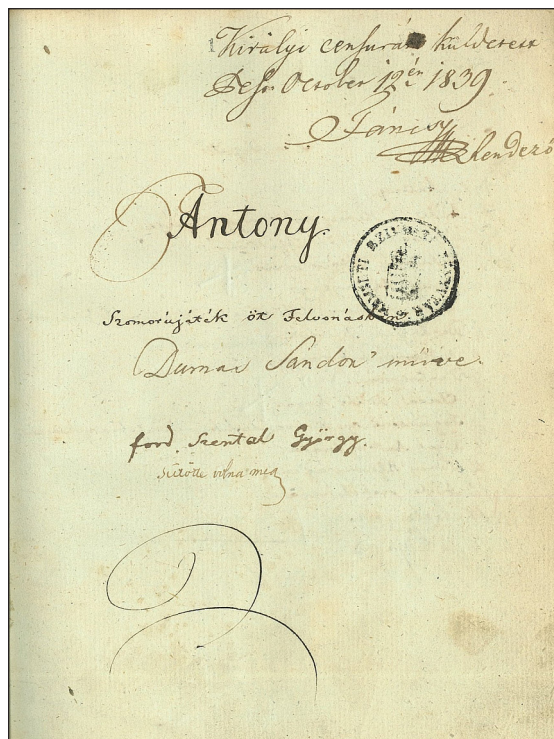 Királyi censurára küldetett
Pesten October 12én 1839.
Fáncsy
Rendező
Antony
Szomorújáték öt Felvonásb
Dumas Sándor' műve.
ford. Szentál György.
volna meg